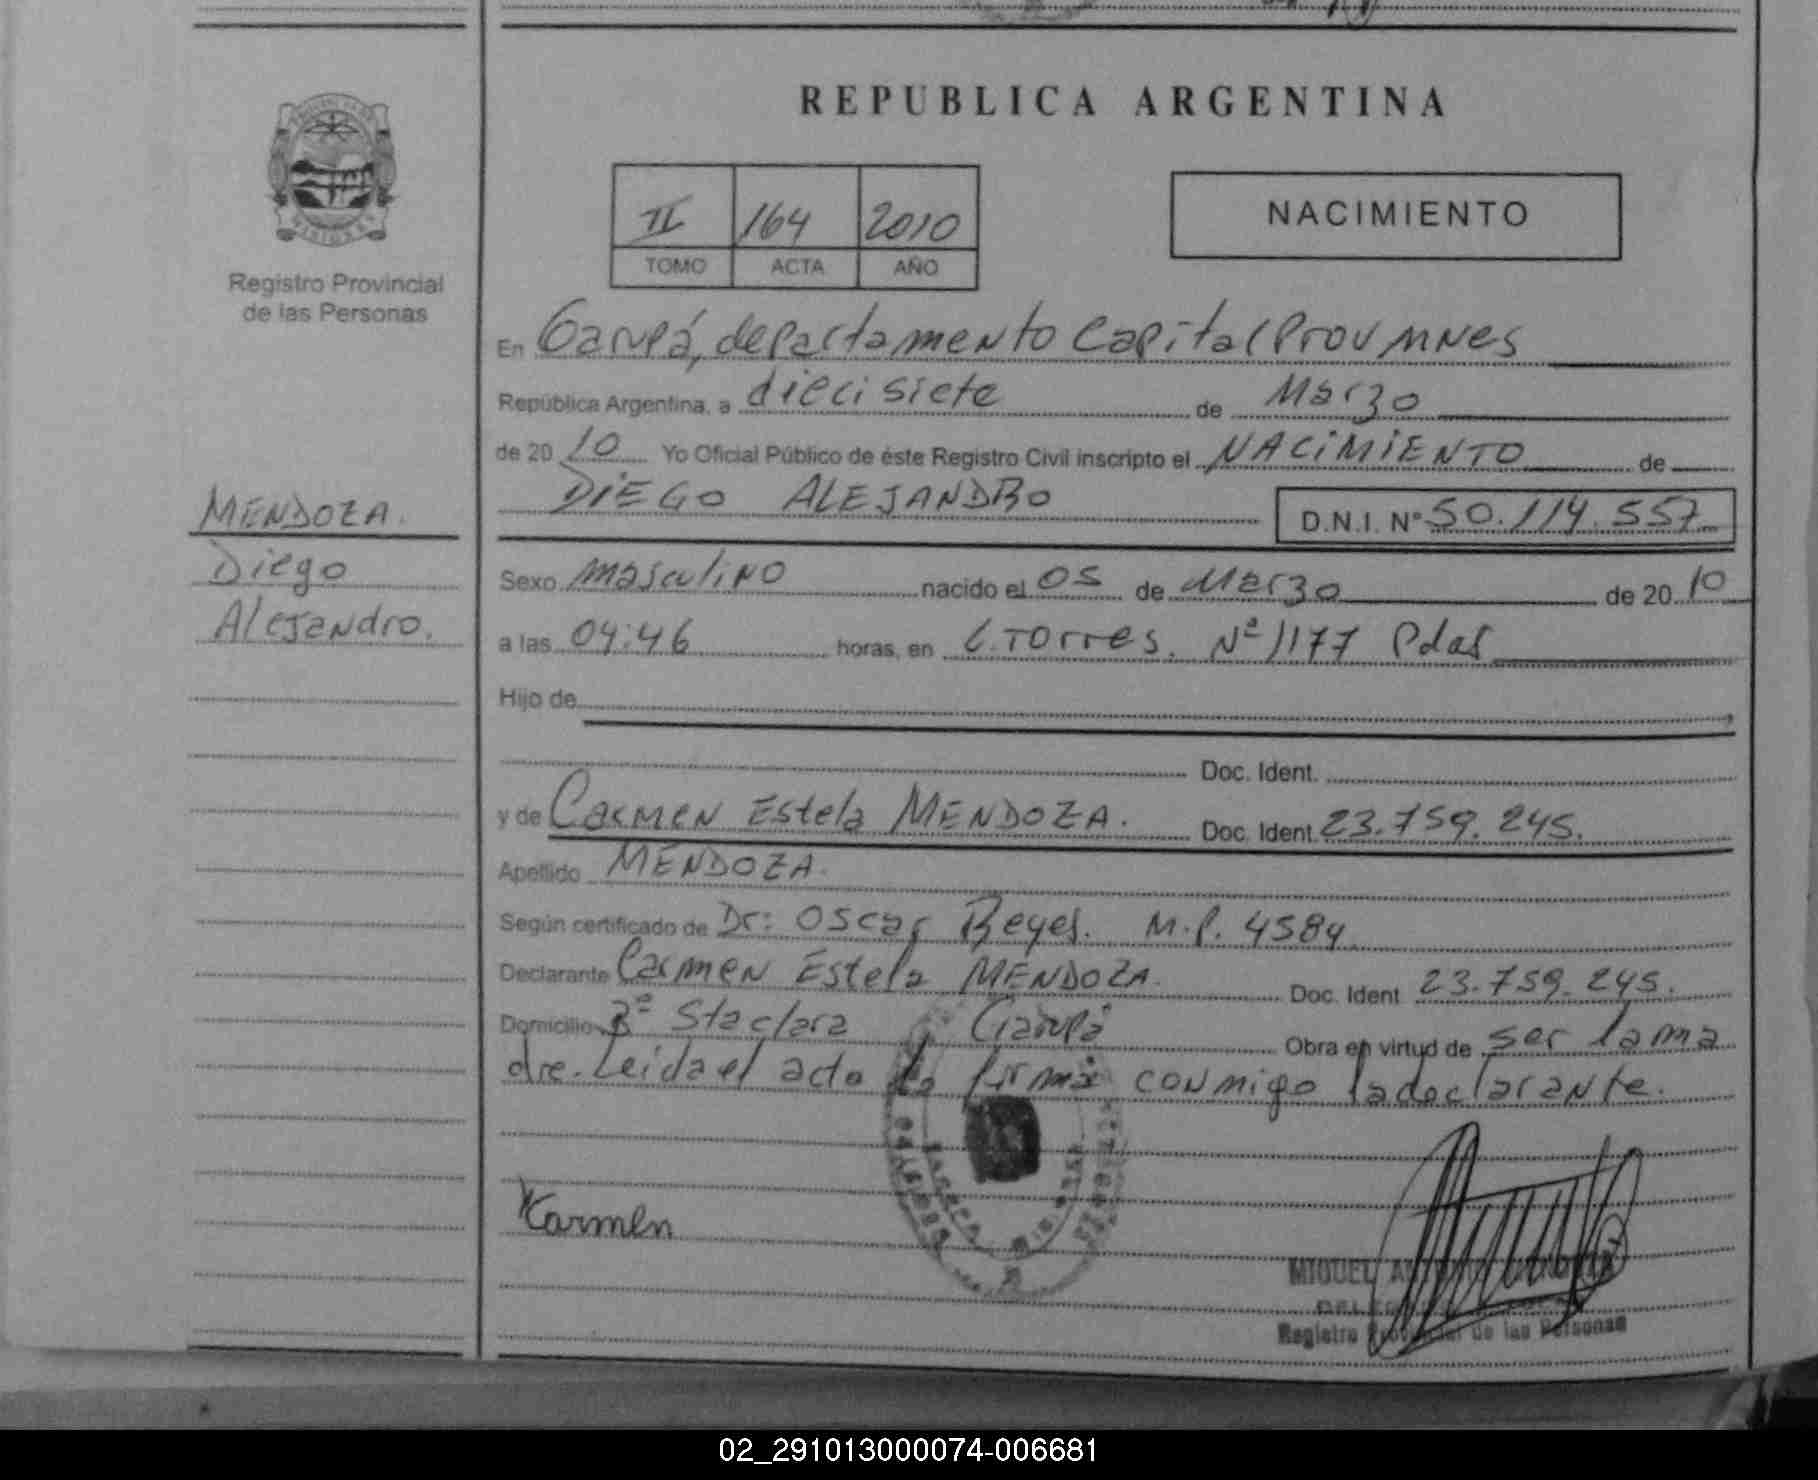 REPUBLICA ARGENTINA
II 164 2010
TOMO ACTA AÑO
NACIMIENTO
Registro Provincial
de las Personas
MENDOZA.
Diego
Alejandro.
En Garupá, departamento Capital Prov Mnes
República Argentina, a diecisiete de Marzo
de 2010 Yo Oficial Público de éste Registro Civil inscripto el NACIMIENTO de
DIEGO ALEJANDRO D.N.I. Nº 50.114.557
Sexo masculino nacido el 05 de Marzo de 2010
a las 04:46 horas, en C. Torres. Nº 1177 Pdas
Hijo de
Doc. Ident.
y de Carmen Estela MENDOZA. Doc. Ident. 23.759.245.
Apellido MENDOZA.
Según certificado de Dr: Oscar Reyes. M.P. 4584
Declarante Carmen Estela MENDOZA. Doc. Ident 23.759.245.
Domicilio Bº Sta clara Garupá Obra en virtud de ser la ma
dre. Leida el acta la firma conmigo la declarante.
Karmen
MIGUEL
Registro Provincial de las Personas
02_291013000074-006681